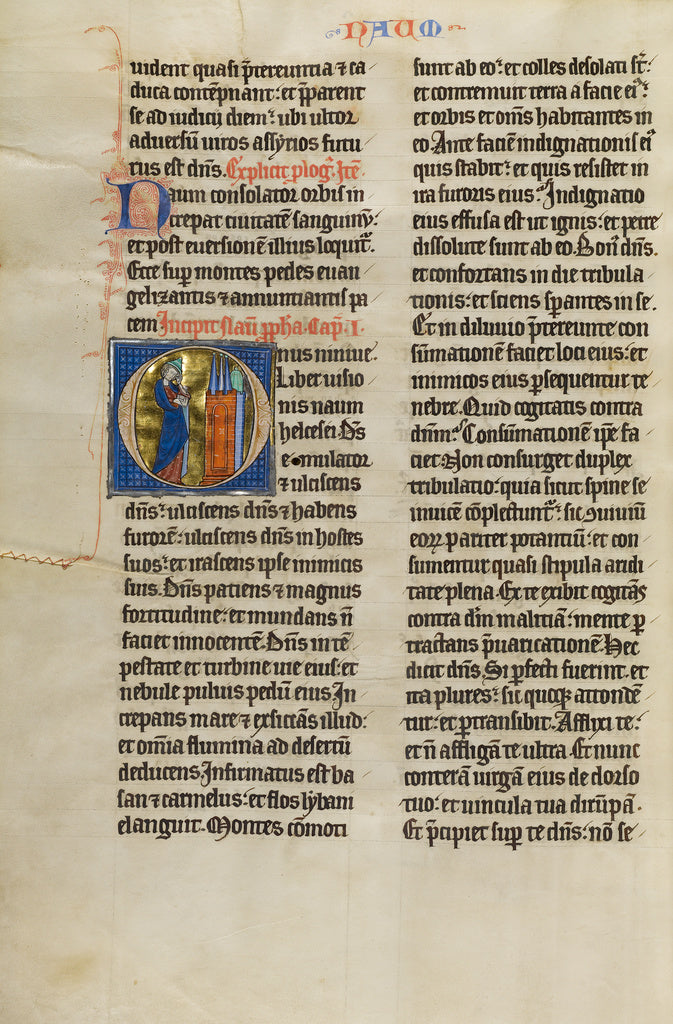 NAUM
uident quasi p̄tereuntia ⁊ ca
duca contēpnant: et p̄parent
se ad iudicij diem: ubi ultor
aduersū uiros assyrios futu
rus est dn̄s. Explicit plog. Itē
Naum consolator orbis in
crepat ciuitatē sanguinū:
et post euersionē illius loquit̄.
Ecce sup montes pedes euan
gelizantis ⁊ annuntiantis pa
cem Incipit naū ppha. Cap. I.
Onus niniue.
Liber uisio
nis naum
helcesei. Ds
emulator
⁊ ulciscens
dn̄s: ulciscens dn̄s ⁊ habens
furorē: ulciscens dn̄s in hostes
suos: et irascens ipse inimicis
suis. Dn̄s patiens ⁊ magnus
fortitudine: et mundans n̄
faciet innocentē. Dn̄s in tē
pestate et turbine uie eius: et
nebule puluis pedū eius. In
crepans mare ⁊ exsiccās illud:
et om̄ia flumina ad desertū
deducens. Infirmatus est ba
san ⁊ carmelus: et flos lybani
elanguit. Montes cōmoti
sunt ab eo: et colles desolati st̄:
et contremuit terra a facie ei᾽:
et orbis et om̄s habitantes in
eo. Ante faciē indignationis ei᾽
quis stabit: et quis resistet in
ira furoris eius: Indignatio
eius effusa est ut ignis: et petre
dissolute sunt ab eo. Bon᾽ dn̄s.
et confortans in die tribula
tionis: et sciens sp̄antes in se.
Et in diluuio p̄tereunte con
sūmationē faciet loci eius: et
inimicos eius psequentur te
nebre. Quid cogitatis contra
dn̄m: Consūmationē ip̄e fa
ciet. Non consurget duplex
tribulatio: quia sicut spine se
inuicē cōplectunt̄: sic ↄuiuiū
eoꝝ pariter potantiū: et con
sumentur quasi stipula aridi
tate plena. Ex te exibit cogitās
contra dn̄m malitiā: mente p
tractans p̄uaricationē. Hec
dicit dn̄s. Si pfecti fuerint. et
ita plures: sic quoqꝫ attondē
tur: et ptransibit. Afflixi te:
et n̄ affligā te ultra. Et nunc
conterā uirgā eius de dorso
tuo: et uincula tua dirūpā.
Et p̄cipiet sup te dn̄s: nō se